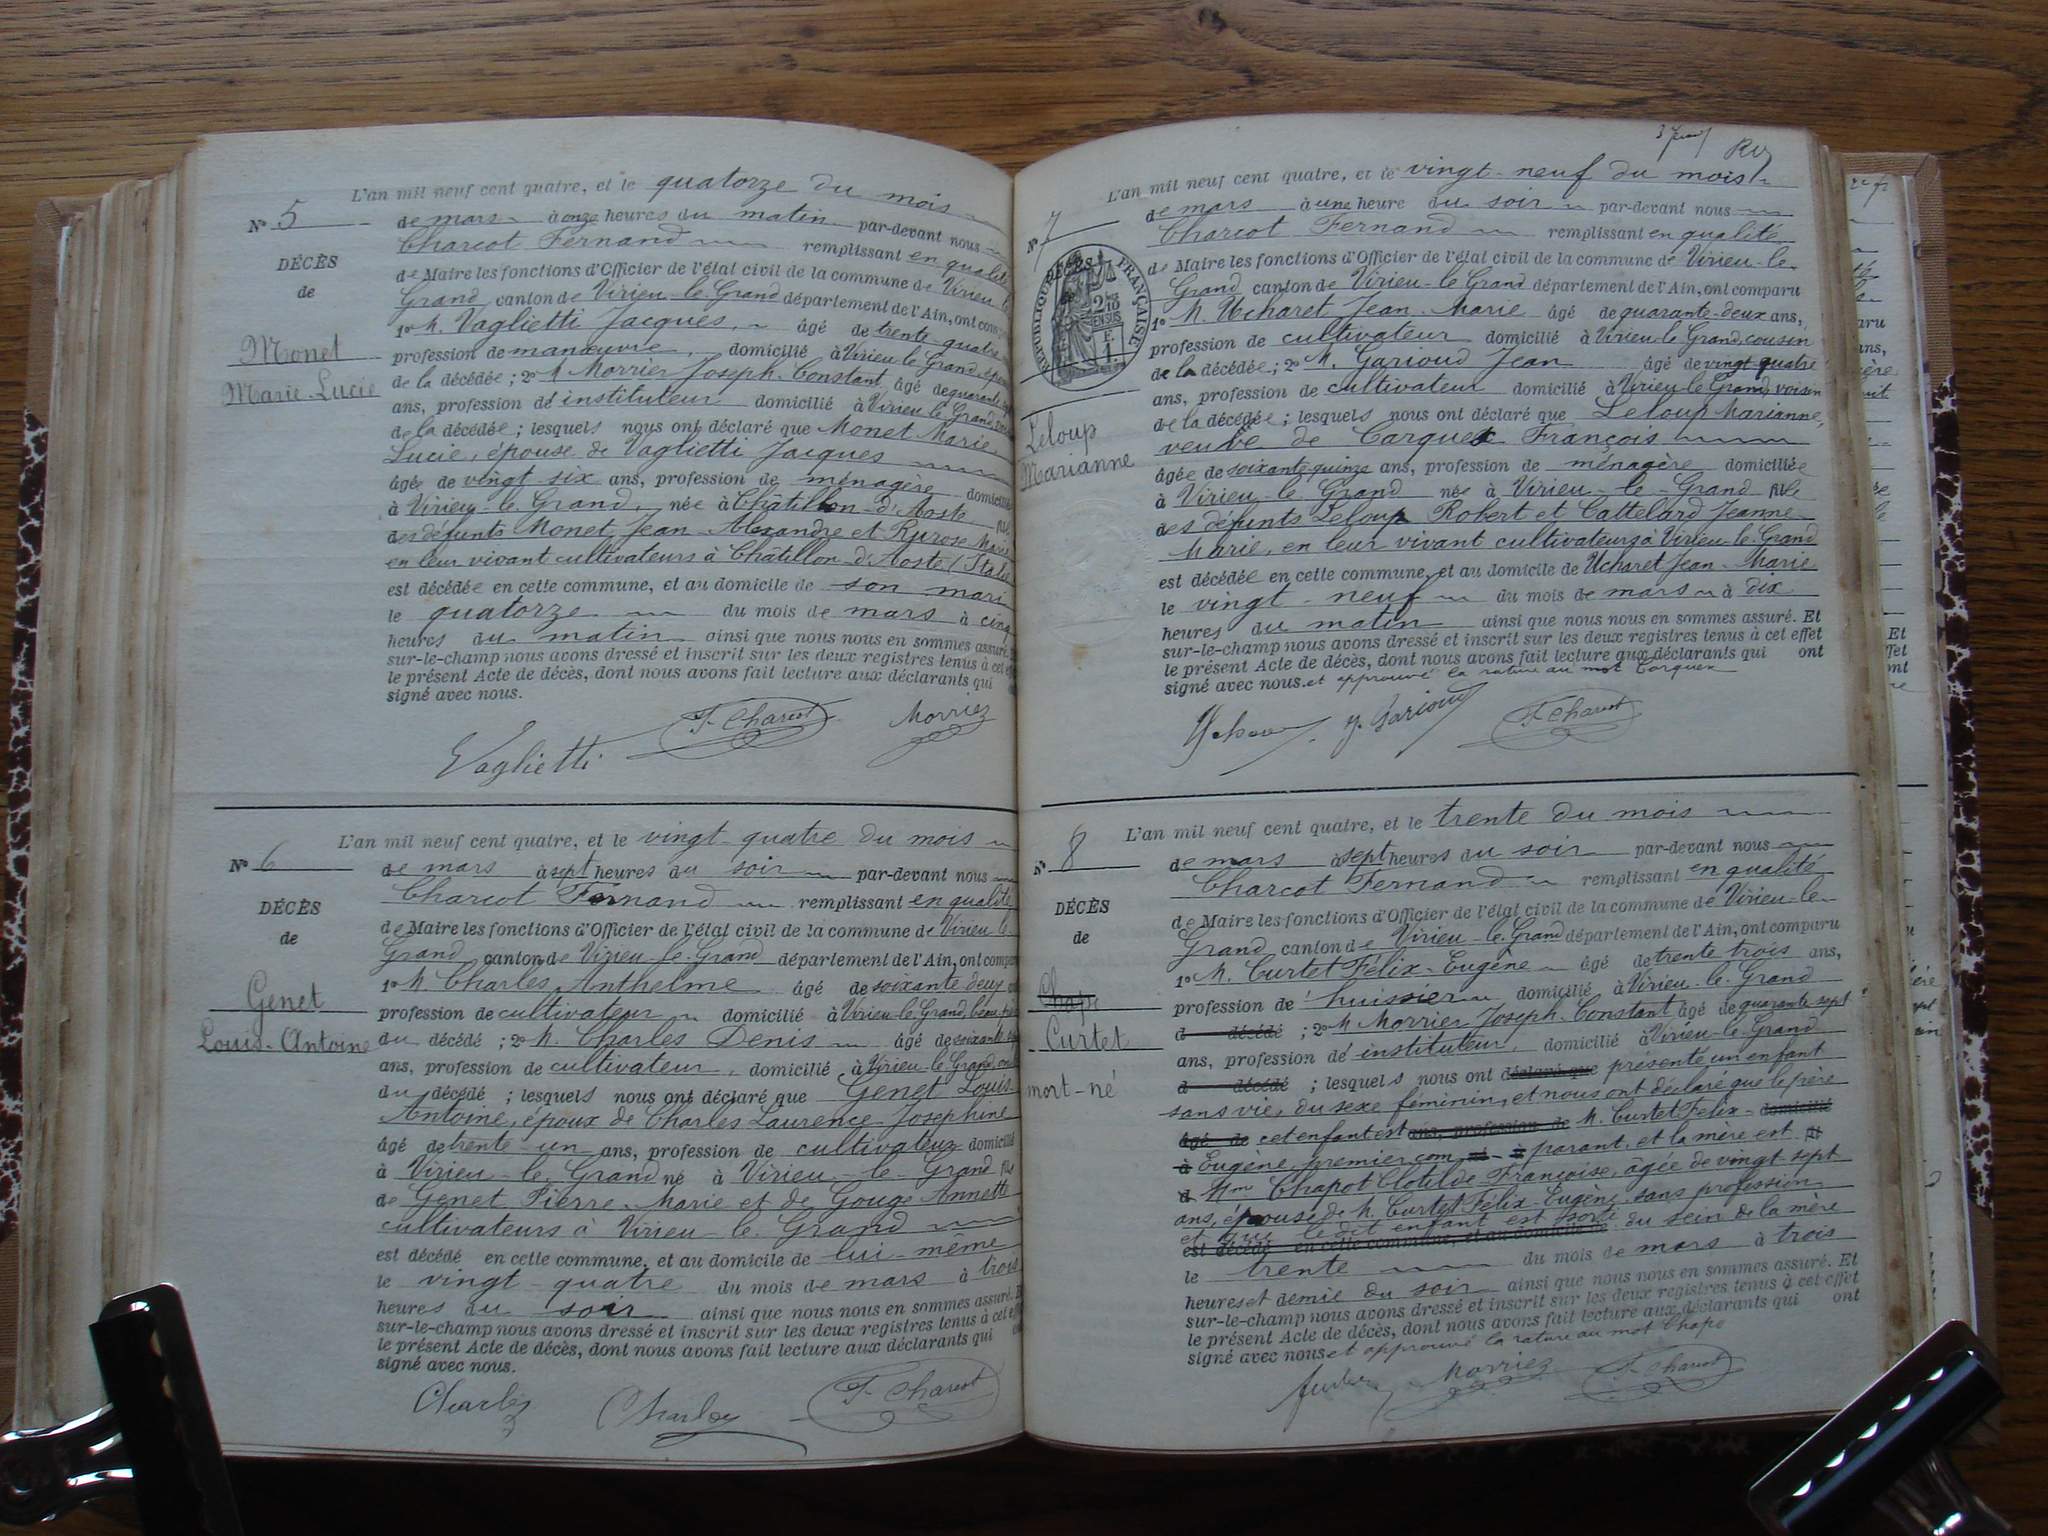 L'an mil neuf cent quatre, et le quatorze du mois
N° 5
de mars à onze heures du matin par-devant nous
Charcot Fernand remplissant en qualité
DÉCÈS
de Maire les fonctions d'Officier de l'état civil de la commune de Virieu-le-
de
Grand, canton de Virieu-le-Grand département de l'Ain, ont
1° M. Vaglietti Jacques, âgé de trente-quatre
Monet
profession de manœuvre, domicilié à Virieu-le-Grand, époux
Marie-Lucie
de la décédée; 2° M Morriez Joseph-Constant, âgé de quarante
ans, profession de instituteur domicilié à Virieu-le-Grand,
de la décédée; lesquels nous ont déclaré que Monet Marie
Lucie, épouse de Vaglietti Jacques
âgée de vingt-six ans, profession de ménagère domiciliée
à Virieu-le-Grand, née à Châtillon-d'Aoste
des défunts Monet Jean Alexandre et Marie
en leur vivant cultivateurs à Châtillon-d'Aoste (Italie
est décédée en cette commune, et au domicile de son mari
le quatorze du mois de mars à cinq
heures du matin ainsi que nous nous en sommes assuré.
sur-le-champ nous avons dressé et inscrit sur les deux registres tenus à cet
le présent Acte de décès, dont nous avons fait lecture aux déclarants qui
signé avec nous.
Vaglietti F. Charcot Morriez
L'an mil neuf cent quatre, et le vingt-quatre du mois
N° 6
de mars à sept heures du soir par-devant nous
Charcot Fernand remplissant en qualité
DÉCÈS
de Maire les fonctions d'Officier de l'état civil de la commune de Virieu-le-
de
Grand canton de Virieu-le-Grand département de l'Ain, ont
1° M. Charles Anthelme âgé de soixante deux
Genet
profession de cultivateur domicilié à Virieu-le-Grand, beau
Louis-Antoine
du décédé; 2° M. Charles Denis âgé de soixante
ans, profession de cultivateur, domicilié à Virieu-le-Grand,
du décédé; lesquels nous ont déclaré que Genet Louis-
Antoine, époux de Charles Laurence Josephine
âgé de trente-un ans, profession de cultivateur domicilié
à Virieu-le-Grand né à Virieu-le-Grand fils
de Genet Pierre-Marie et de Gouge Annette
cultivateurs à Virieu-le-Grand
est décédé en cette commune, et au domicile de lui-même
le vingt-quatre du mois de mars à trois
heures du soir ainsi que nous nous en sommes assuré.
sur-le-champ nous avons dressé et inscrit sur les deux registres tenus à cet
le présent Acte de décès, dont nous avons fait lecture aux déclarants qui
signé avec nous.
Charles Charles F. Charcot
L'an mil neuf cent quatre, et le vingt-neuf du mois
N° 7
de mars à une heure du soir par-devant nous
Charcot Fernand remplissant en qualité
DÉCÈS
RÉPUBLIQUE FRANÇAISE
de Maire les fonctions d'Officier de l'état civil de la commune de Virieu-le-
Grand canton de Virieu-le-Grand département de l'Ain, ont comparu
1° M. Ucharet Jean-Marie âgé de quarante-deux ans,
profession de cultivateur domicilié à Virieu-le-Grand, cousin
de la décédée; 2° M. Garioud Jean âgé de vingt quatre
ans, profession de cultivateur domicilié à Virieu-le-Grand, voisin
Leloup
de la décédée; lesquels nous ont déclaré que Leloup Marianne,
Marianne
veuve de Carquex François
âgée de soixante quinze ans, profession de ménagère domiciliée
à Virieu-le-Grand née à Virieu-le-Grand fille
des défunts Leloup Robert et Cattelard Jeanne
Marie, en leur vivant cultivateurs à Virieu-le-Grand
est décédée en cette commune, et au domicile de Ucharet Jean-Marie
le vingt-neuf du mois de mars à dix
heures du matin ainsi que nous nous en sommes assuré. Et
sur-le-champ nous avons dressé et inscrit sur les deux registres tenus à cet effet
le présent Acte de décès, dont nous avons fait lecture aux déclarants qui ont
signé avec nous. et approuvé la rature au mot Carquex
J. Garioud F. Charcot
L'an mil neuf cent quatre, et le trente du mois
N° 8
de mars à sept heures du soir par-devant nous
Charcot Fernand remplissant en qualité
DÉCÈS
de Maire les fonctions d'Officier de l'état civil de la commune de Virieu-le-
de
Grand canton de Virieu-le-Grand département de l'Ain, ont comparu
1° M. Curtet Félix-Eugène âgé de trente trois ans,
Chape
profession de huissier domicilié à Virieu-le-Grand
Curtet
d décédé; 2° M Morriez Joseph-Constant âgé de quarante sept
ans, profession de instituteur, domicilié à Virieu-le-Grand
mort-né
d décédé; lesquels nous ont déclaré que présenté un enfant
sans vie, du sexe féminin, et nous ont déclaré que le père
âgé de cet enfant est ans, profession de M. Curtet Félix- domicilié
à Eugène, premier com né à parant, et la mère est
d Mme Chapot Clotilde Françoise, âgée de vingt sept
ans, épouse de M. Curtet Félix-Eugène, sans profession
et que le dit enfant est sorti du sein de la mère
est décédé en cette commune, et au domicile de
le trente du mois de mars à trois
heures et demie du soir ainsi que nous nous en sommes assuré. Et
sur-le-champ nous avons dressé et inscrit sur les deux registres tenus à cet effet
le présent Acte de décès, dont nous avons fait lecture aux déclarants qui ont
signé avec nous et approuvé la rature au mot Chape
Morriez F. Charcot